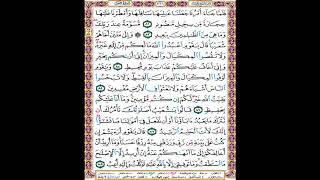 فَلَمَّا جَآءَ أَمْرُنَا جَعَلْنَا عَٰلِيَهَا سَافِلَهَا وَأَمْطَرْنَا عَلَيْهَا
حِجَارَةً مِّن سِجِّيلٍ مَّنضُودٍ ٨٢ مُّسَوَّمَةً عِندَ رَبِّكَ
وَمَا هِىَ مِنَ ٱلظَّٰلِمِينَ بِبَعِيدٍ ٨٣ وَإِلَىٰ مَدْيَنَ أَخَاهُمْ
شُعَيْبًا قَالَ يَٰقَوْمِ ٱعْبُدُوا۟ ٱللَّهَ مَا لَكُم مِّنْ إِلَٰهٍ غَيْرُهُۥ وَلَا
تَنقُصُوا۟ ٱلْمِكْيَالَ وَٱلْمِيزَانَ إِنِّىٓ أَرَىٰكُم بِخَيْرٍ
وَإِنِّىٓ أَخَافُ عَلَيْكُمْ عَذَابَ يَوْمٍ مُّحِيطٍ ٨٤ وَيَٰقَوْمِ
أَوْفُوا۟ ٱلْمِكْيَالَ وَٱلْمِيزَانَ بِٱلْقِسْطِ وَلَا تَبْخَسُوا۟
ٱلنَّاسَ أَشْيَآءَهُمْ وَلَا تَعْثَوْا۟ فِى ٱلْأَرْضِ مُفْسِدِينَ ٨٥
بَقِيَّتُ ٱللَّهِ خَيْرٌ لَّكُمْ إِن كُنتُم مُّؤْمِنِينَ وَمَآ أَنَا۠ عَلَيْكُم
بِحَفِيظٍ ٨٦ قَالُوا۟ يَٰشُعَيْبُ أَصَلَوٰتُكَ تَأْمُرُكَ أَن نَّتْرُكَ
مَا يَعْبُدُ ءَابَآؤُنَآ أَوْ أَن نَّفْعَلَ فِىٓ أَمْوَٰلِنَا مَا نَشَٰٓؤُا۟ إِنَّكَ
لَأَنتَ ٱلْحَلِيمُ ٱلرَّشِيدُ ٨٧ قَالَ يَٰقَوْمِ أَرَءَيْتُمْ إِن كُنتُ
عَلَىٰ بَيِّنَةٍ مِّن رَّبِّى وَرَزَقَنِى مِنْهُ رِزْقًا حَسَنًا وَمَآ أُرِيدُ أَنْ
أُخَالِفَكُمْ إِلَىٰ مَآ أَنْهَىٰكُمْ عَنْهُ إِنْ أُرِيدُ إِلَّا ٱلْإِصْلَٰحَ
مَا ٱسْتَطَعْتُ وَمَا تَوْفِيقِىٓ إِلَّا بِٱللَّهِ عَلَيْهِ تَوَكَّلْتُ وَإِلَيْهِ أُنِيبُ ٨٨